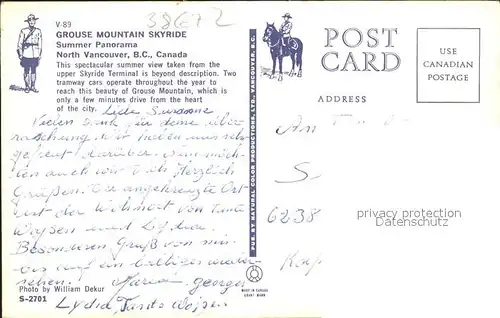 38672
V-89
GROUSE MOUNTAIN SKYRIDE
Summer Panorama
North Vancouver, B.C., Canada
This spectacular summer view taken from the
upper Skyride Terminal is beyond description. Two
tramway cars operate throughout the year to
reach this beauty of Grouse Mountain, which is
only a few minutes drive from the heart
of the city.
Liebe Susanne
Vielen Dank für deine über
raschung, wir haben uns sehr
gefreut darüber. wir möch
ten auch wir Dich Herzlich
Grüßen. Die angekreuzte Ort
ist der Wohnort von Tante
und Lydia.
Besonderen Gruß von mir
bis auf ein baldiges wieder
sehen. Maria georges
Lydia, Tante
Photo by William Dekur
S-2701
PUB. BY NATURAL COLOR PRODUCTIONS, LTD., VANCOUVER, B.C.
MADE IN CANADA
POST
CARD
ADDRESS
USE
CANADIAN
POSTAGE
An
S
6238
privacy protection
DELCAMPE.NET